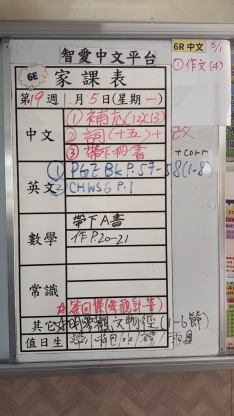 智愛中文平台
6E
家課表
6R 中文 5/1
①作文(4)
第19週 1月5日(星期一)
中文
① 補充(12,13)
② 詞(十五)+改
③ 帶下冊書
+corr
英文
① PGE BK P.57-58(1-8)
② CHWS6 P.1
數學
帶下A書
作P.20-21
常識
其它
(1-6節)
值日生